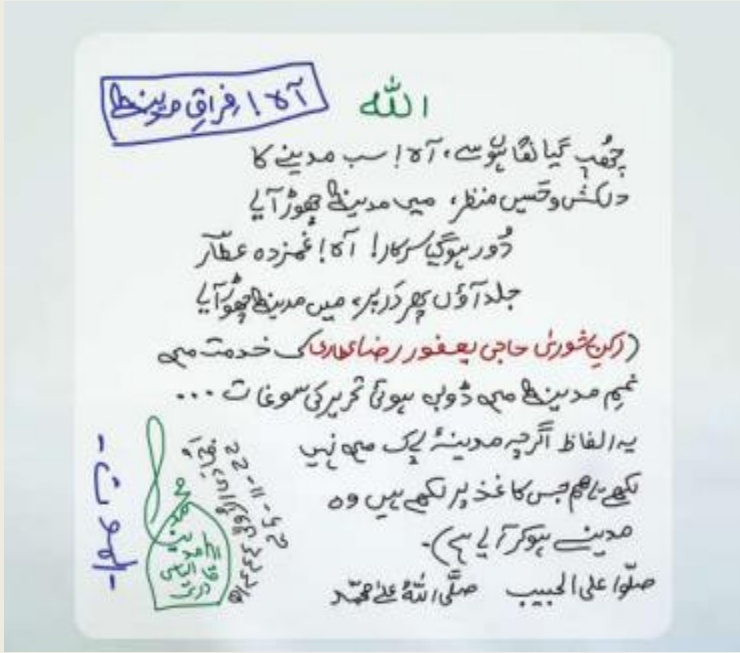 اللہ
آہ! فراقِ مدینہ
چُھپ گیا نگاہوں سے، آہ! سب مدینے کا
دلکش و حَسیں منظر، میں مدینہ چھوڑ آیا
دُور ہوگیا سرکار! آہ! غمزدہ عطّار
جلد آؤں پھر دَر پر، میں مدینہ چھوڑ آیا
(رکنِ شوریٰ حاجی یعفور رضا عطاری کی خدمت میں
غمِ مدینہ میں ڈوبی ہوئی تحریر کی سوغات ...
یہ الفاظ اگرچہ مدینۂ پاک میں نہیں
لکھے تاہم جس کاغذ پر لکھے ہیں وہ
مدینے ہوکر آیا ہے)۔
صلّوا علی الحبیب صلَّی اللہُ علیٰ محمّد
- الموت -
22-11-25